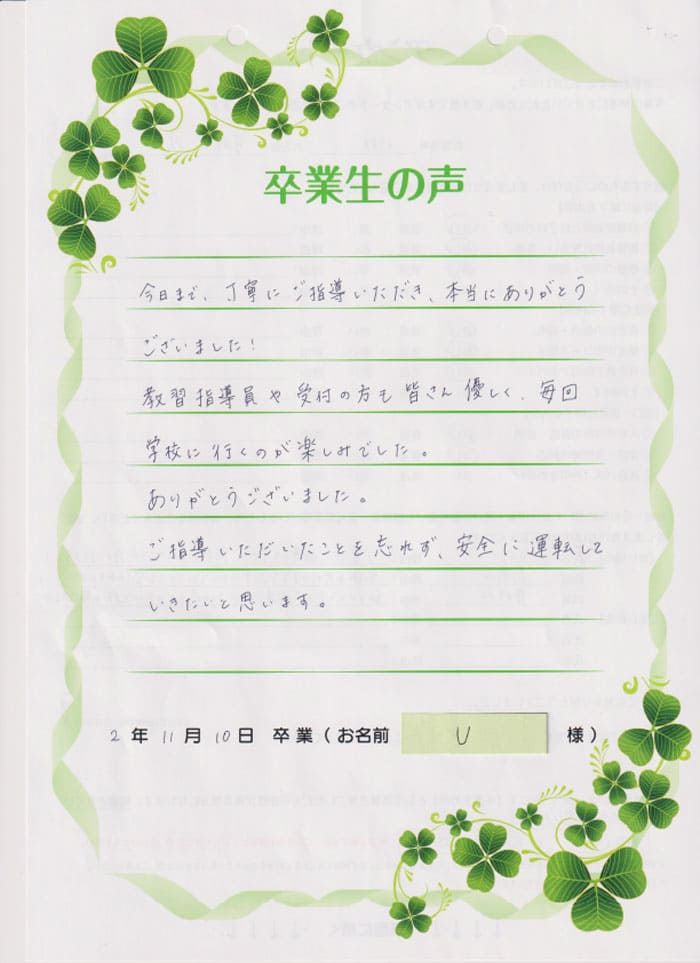 卒業生の声
今日まで、丁寧にご指導いただき、本当にありがとう
ございました!
教習指導員や受付の方も皆さん優しく、毎回
学校に行くのが楽しみでした。
ありがとうございました。
ご指導いただいたことを忘れず、安全に運転して
いきたいと思います。
2年11月10日 卒業(お名前 U 様)